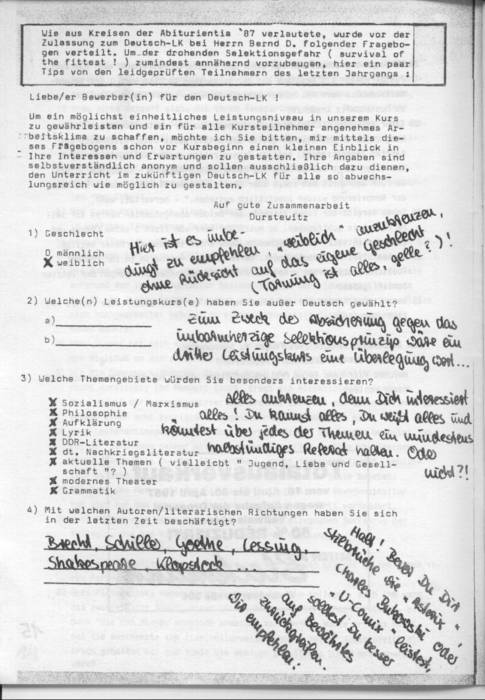 Wie aus Kreisen der Abiturientia '87 verlautete, wurde vor der
Zulassung zum Deutsch-LK bei Herrn Bernd D. folgender Fragebo-
gen verteilt. Um der drohenden Selektionsgefahr ( survival of
the fittest ! ) zumindest annähernd vorzubeugen, hier ein paar
Tips von den leidgeprüften Teilnehmern des letzten Jahrgangs :
Liebe/er Bewerber(in) für den Deutsch-LK !
Um ein möglichst einheitliches Leistungsniveau in unserem Kurs
zu gewährleisten und ein für alle Kursteilnehmer angenehmes Ar-
beitsklima zu schaffen, möchte ich Sie bitten, mir mittels die-
ses Fragebogens schon vor Kursbeginn einen kleinen Einblick in
Ihre Interessen und Erwartungen zu gestatten. Ihre Angaben sind
selbstverständlich anonym und sollen ausschließlich dazu dienen,
den Unterricht im zukünftigen Deutsch-LK für alle so abwechs-
lungsreich wie möglich zu gestalten.
Auf gute Zusammenarbeit
Durstewitz
1) Geschlecht
O männlich
X weiblich
Hier ist es unbe-
dingt zu empfehlen, "weiblich" anzukreuzen,
ohne Rücksicht auf das eigene Geschlecht
(Tarnung ist alles, gelle?)!
2) Welche(n) Leistungskurs(e) haben Sie außer Deutsch gewählt?
a)
b)
Zum Zweck der Absicherung gegen das
unbarmherzige Selektionsprinzip wäre ein
dritter Leistungskurs eine Überlegung wert...
3) Welche Themengebiete würden Sie besonders interessieren?
X Sozialismus / Marxismus
X Philosophie
X Aufklärung
X Lyrik
X DDR-Literatur
X dt. Nachkriegsliteratur
X aktuelle Themen ( vielleicht " Jugend, Liebe und Gesell-
schaft "? )
X modernes Theater
X Grammatik
alles ankreuzen, denn Dich interessiert
alles! Du kannst alles, Du weißt alles und
könntest über jedes der Themen ein mindestens
halbstündiges Referat halten. Oder
nicht?!
4) Mit welchen Autoren/literarischen Richtungen haben Sie sich
in der letzten Zeit beschäftigt?
Brecht, Schiller, Goethe, Lessing,
Shakespeare, Klopstock ...
Halt! Bevor Du Dir
sie "Asterix",
Charles Bukowski oder
"U-Comix" leistest,
solltest Du besser
auf Bewährtes
zurückgreifen.
Wir empfehlen: